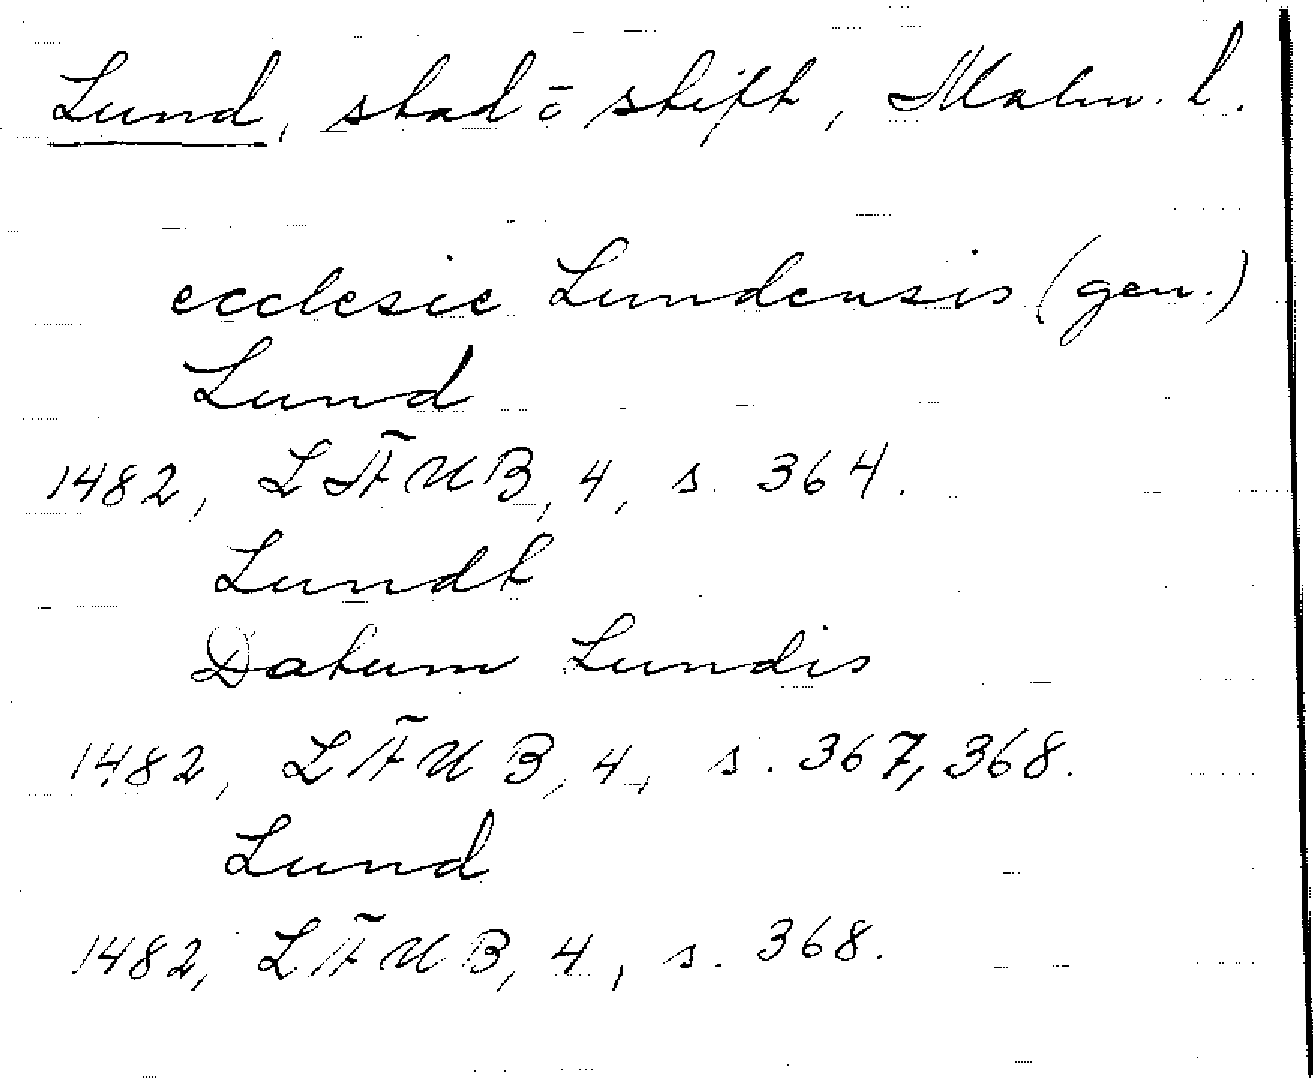 Lund, stad ō stift, Malm. l.
ecclesie Lundensis (gen.)
Lund
1482, LÄUB, 4, s. 364.
Lundt
Datum Lundis
1482, LÄUB, 4, s. 367, 368.
Lund
1482, LÄUB, 4, s. 368.